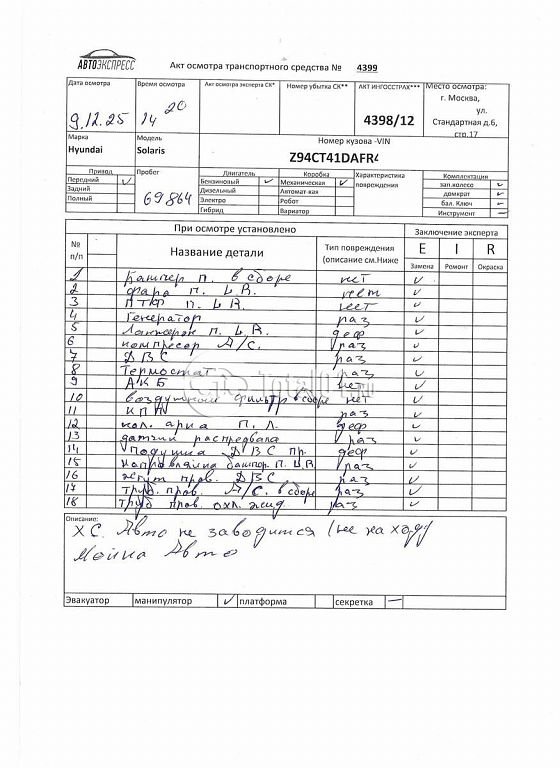 АВТОЭКСПРЕСС
Акт осмотра транспортного средства № 4399
Дата осмотра
9.12.25
Время осмотра
14 20
Акт осмотра эксперта СК*
Номер убытка СК**
АКТ ИНГОССТРАХ***
4398/12
Место осмотра:
г. Москва,
ул.
Стандартная д.6,
стр.17
Марка
Hyundai
Модель
Solaris
Номер кузова -VIN
Z94CT41DAFR4
Привод
Передний ✓
Задний
Полный
Пробег
69864
Двигатель
Бензиновый ✓
Дизельный
Электро
Гибрид
Коробка
Механическая ✓
Автомат-кая
Робот
Вариатор
Характеристика
повреждения
Комплектация
зап.колесо ✓
домкрат ✓
бал. Ключ ✓
Инструмент —
При осмотре установлено
Заключение эксперта
№
п/п
Название детали
Тип повреждения
(описание см.Ниже
E I R
Замена Ремонт Окраска
1 Бампер п. в сборе нет ✓
2 фара п. L.R. нет ✓
3 ПТФ п. L.R. нет ✓
4 Генератор раз ✓
5 Лонжерон п. L.R. деф ✓
6 компресор A/C. раз ✓
7 ДВС раз ✓
8 Термостат раз ✓
9 АКБ нет ✓
10 воздушный фильтр в сборе нет ✓
11 КПП раз ✓
12 кол. арка П. Л. деф ✓
13 датчик распредвала раз ✓
14 Подушка ДВС пр. деф ✓
15 направляйка бампер. П. L.R. раз ✓
16 жгут пров. ДВС раз ✓
17 труб. пров. A/C. в сборе раз ✓
18 труб пров. охл. жид. раз ✓
Описание:
ХС. Авто не заводится (не на ходу)
Мойка Авто
Эвакуатор манипулятор ✓ платформа секретка —